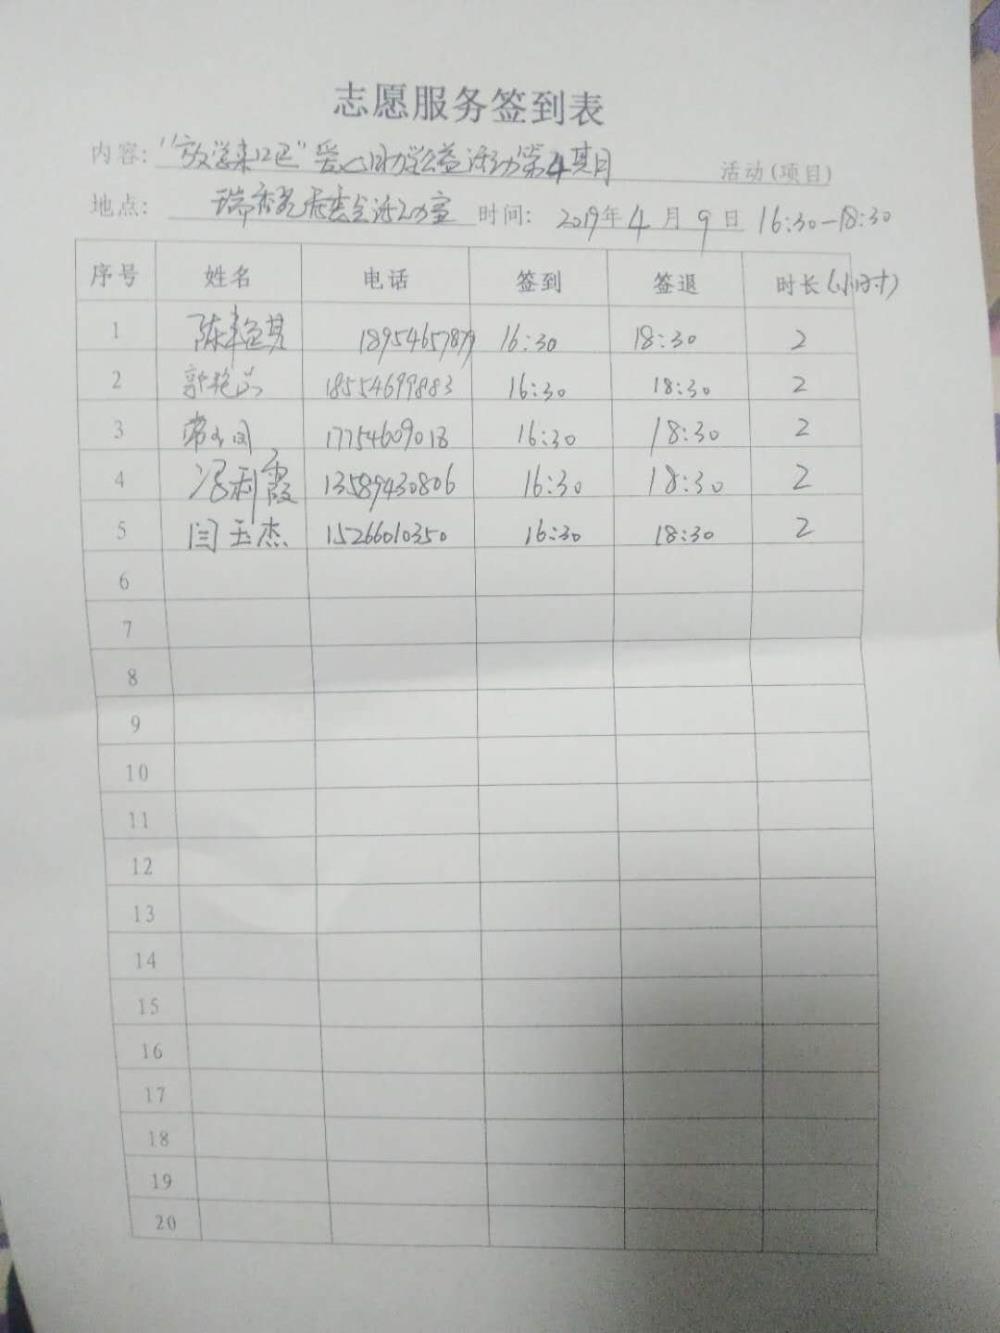 志愿服务签到表
内容: "放学来吧" 爱心助学公益活动第4期 活动(项目)
地点: 瑞香苑居委会活动室 时间: 2019年4月9日 16:30-18:30
序号 姓名 电话 签到 签退 时长(小时)
1 陈 18954657879 16:30 18:30 2
2 郭艳 18554699883 16:30 18:30 2
3 常 17754609018 16:30 18:30 2
4 冯利霞 13589430806 16:30 18:30 2
5 闫玉杰 15266010350 16:30 18:30 2
6
7
8
9
10
11
12
13
14
15
16
17
18
19
20